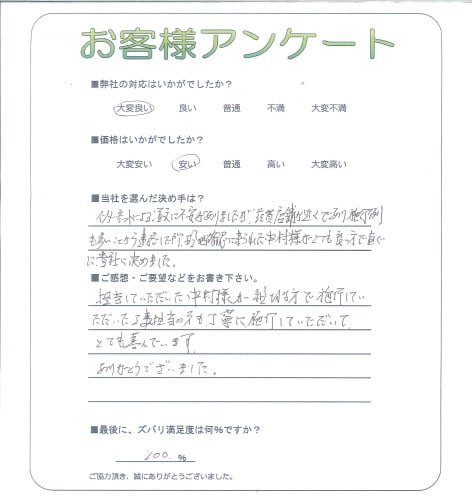 お客様アンケート
■弊社の対応はいかがでしたか?
大変良い 良い 普通 不満 大変不満
■価格はいかがでしたか?
大変安い 安い 普通 高い 大変高い
■当社を選んだ決め手は?
インターネットによる に不安がありましたが、滋賀店舗が近くであり施行例
も多いことから連絡したが、 に来られた中村様がとても良い方で直ぐ
に貴社に決めました。
■ご感想・ご要望などをお書き下さい。
担当していただいた中村様が親切な方で施行してい
ただいた工事担当の方も丁寧に施行していただいて
とても喜んでいます
ありがとうございました。
■最後に、ズバリ満足度は何%ですか?
100. %
ご協力頂き、誠にありがとうございました。